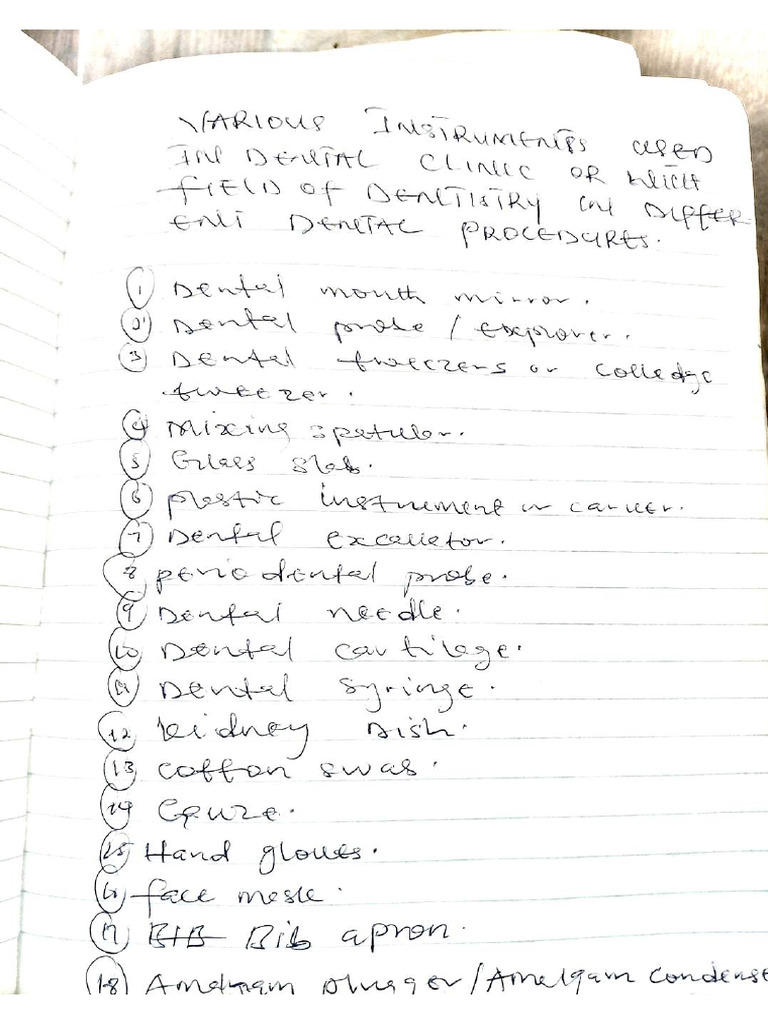 VARIOUS INSTRUMENTS USED
IN DENTAL CLINIC OR WHICH
FIELD OF DENTISTRY IN DIFFER
ENT DENTAL PROCEDURES.
1 Dental mouth mirror.
2 Dental probe / explorer.
3 Dental tweezers or colledge
tweezer.
4 Mixing spatular.
5 Glass slab.
6 plastic instrument or carver.
7 Dental excavator.
8 periodental probe.
9 Dental needle.
10 Dental cartilage.
11 Dental syringe.
12 kidney Dish.
13 cotton swab.
14 Gauze.
15 Hand gloves.
16 face mask.
17 BIB Bib apron.
18 Amalgam plugger/Amalgam condense